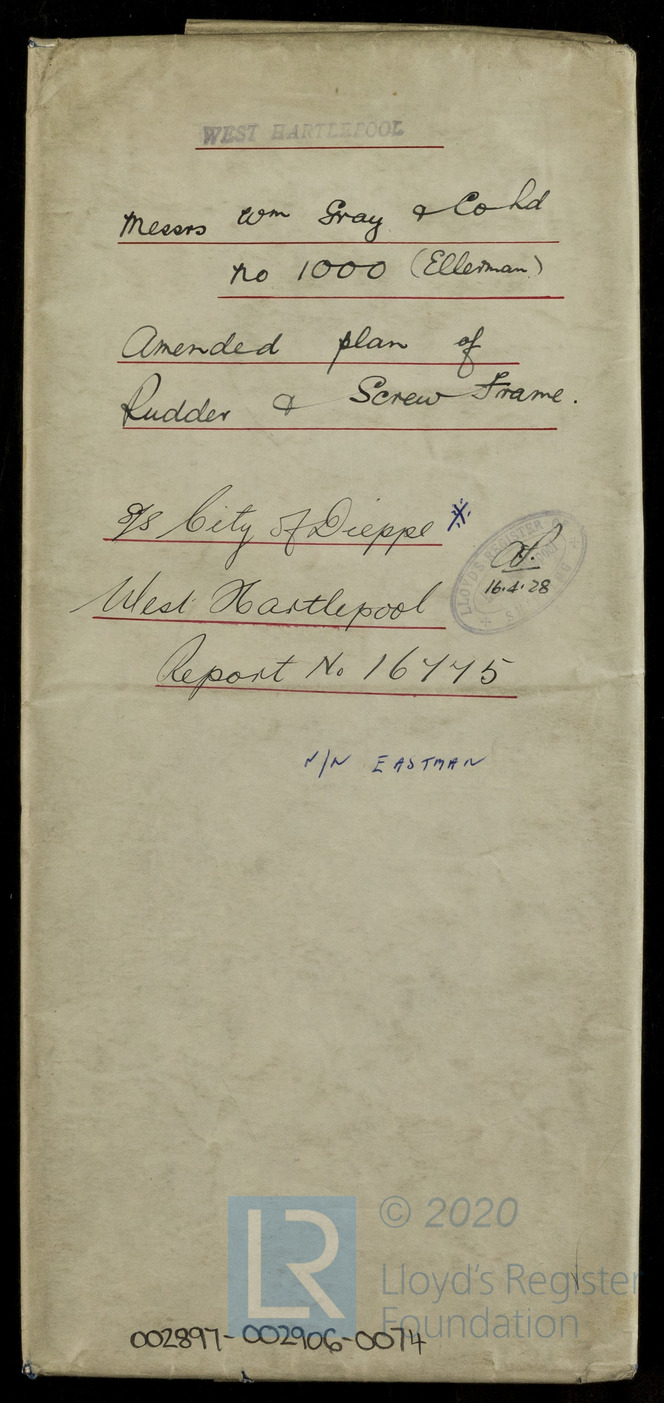 WEST HARTLEPOOL
Messrs Wm Gray & Co Ld
No 1000 (Ellerman)
Amended plan of
Rudder & Screw Frame.
S/S City of Dieppe *
West Hartlepool
Report No 16775
LLOYD'S REGISTER
16.4.28
N/N EASTMAN
LR
© 2020
Lloyd's Register
Foundation
002897-002906-0074